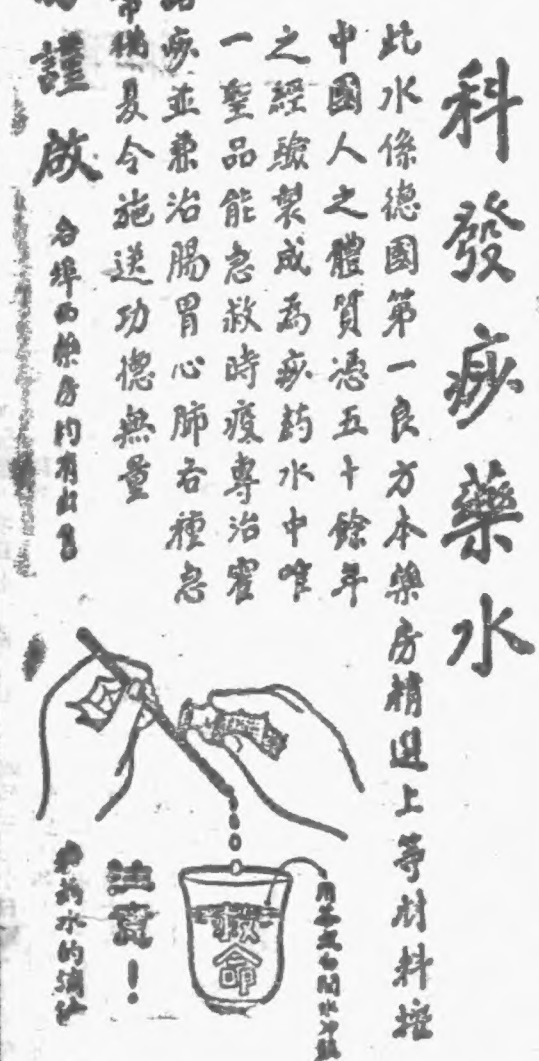 科發痧藥水
此水係德國第一良方本藥房精選上等材料擬
中國人之體質憑五十餘年
之經驗製成為痧藥水中唯
一聖品能急救時疫專治霍
痧並兼治腸胃心肺各種急
夏令施送功德無量
謹啟
各埠西藥房均有出售
救命
注意!
藥水的滴